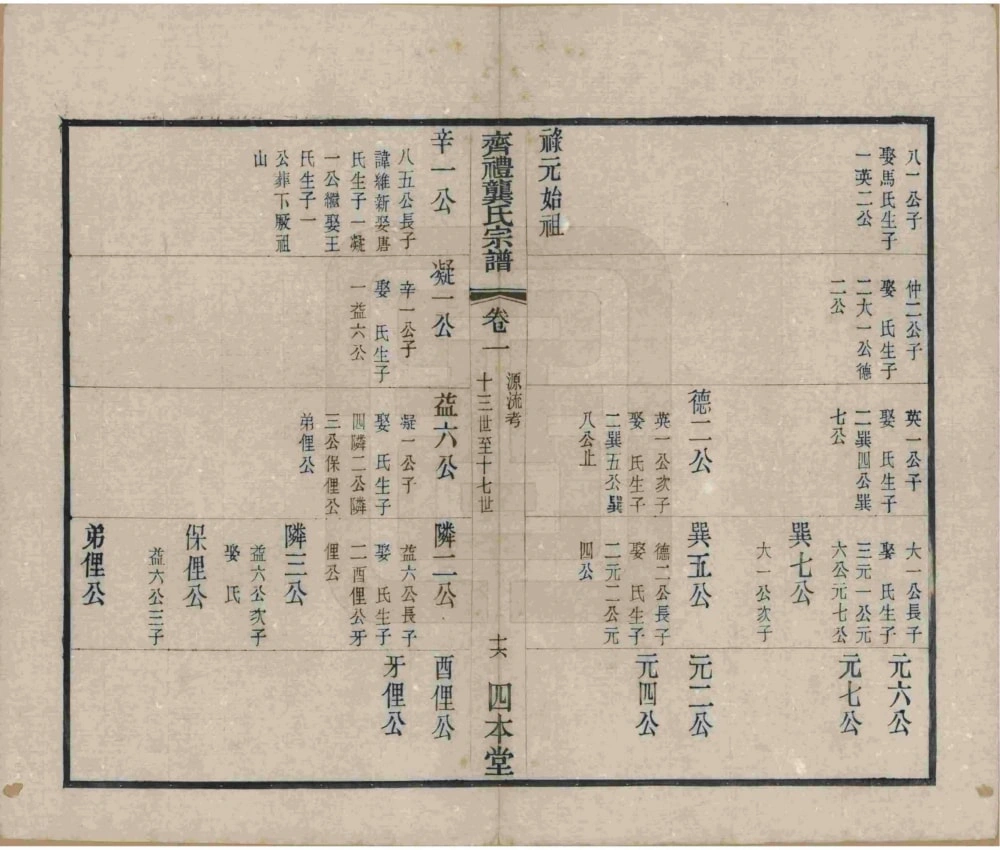 八一公子
娶馬氏生子
一英二公
祿元始祖
仲二公子
娶　氏生子
二大一公德
二公
英一公子
娶　氏生子
二巽四公巽
七公
德二公
英一公次子
娶　氏生子
二巽五公巽
八公止
大一公長子
娶　氏生子
三元一公元
六公元七公
巽七公
大一公次子
巽五公
德二公長子
娶　氏生子
二元二公元
四公
元六公
元七公
元二公
元四公
齊禮龔氏宗譜
卷一
源流考
十三世至十七世
十六
四本堂
辛一公
八五公長子
諱維新娶唐
氏生子一凝
一公繼娶王
氏生子一
公葬下厥祖
山
凝一公
辛一公子
娶　氏生子
一益六公
益六公
凝一公子
娶　氏生子
四隣二公隣
三公保俚公
弟俚公
隣二公
益六公長子
娶　氏生子
二酉俚公牙
俚公
隣三公
益六公次子
娶　氏
保俚公
益六公三子
弟俚公
酉俚公
牙俚公